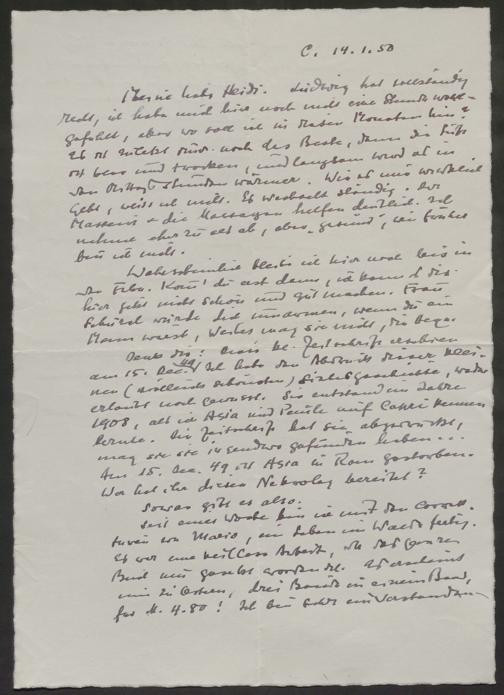 C. 14.1.50
Meine liebe Heidi. Ludwig hat vollständig
Recht, ich habe mich hier noch nicht eine Stunde wohl-
gefühlt, aber wo soll ich in diesen Monaten hin?
Es ist zuletzt hier noch das Beste, denn die Luft
ist klar und trocken, und langsam wird es in
den Stunden wärmer. Wie es mir wirklich
geht, weiss ich nicht. Es wechselt ständig. Der
Masseur + die Massagen helfen deutlich. Ich
nehme eher zu als ab, aber „gesund", wie früher
bin ich nicht.
Wahrscheinlich bleibe ich hier noch bis in
den Febr. Komm' du erst dann, ich kann es dir
hier jetzt nicht schön und gut machen. Frau
würde dich umarmen, wenn du ein
Mann wärst, Weiber mag sie nicht,
Denk dir: kl. Zeitschrift
am 15. Dez. 49 / Ich habe den Abdruck dieser klei-
nen ( ) Liebesgeschichte, weder
erlaubt noch gewusst. Sie entstand im Jahre
1908, als ich Asja und Paule auf Capri kennen
lernte. Die Zeitschrift hat sie abgedruckt,
mag sie sie irgendwo gefunden haben...
Am 15. Dez. 49 ist Asja in Rom gestorben.
Wer hat ihr diesen Nekrolog bereitet?
Sowas gibt es also.
Seit einer Woche bin ich mit den Correk-
turen von Mario, ein Leben im Walde fertig.
Es war eine Arbeit, da das ganze
Buch neu gesetzt worden ist. Es erscheint
nun zu Ostern, drei Bände in einem Band,
für M. 4.80! Ich bin sehr einverstanden